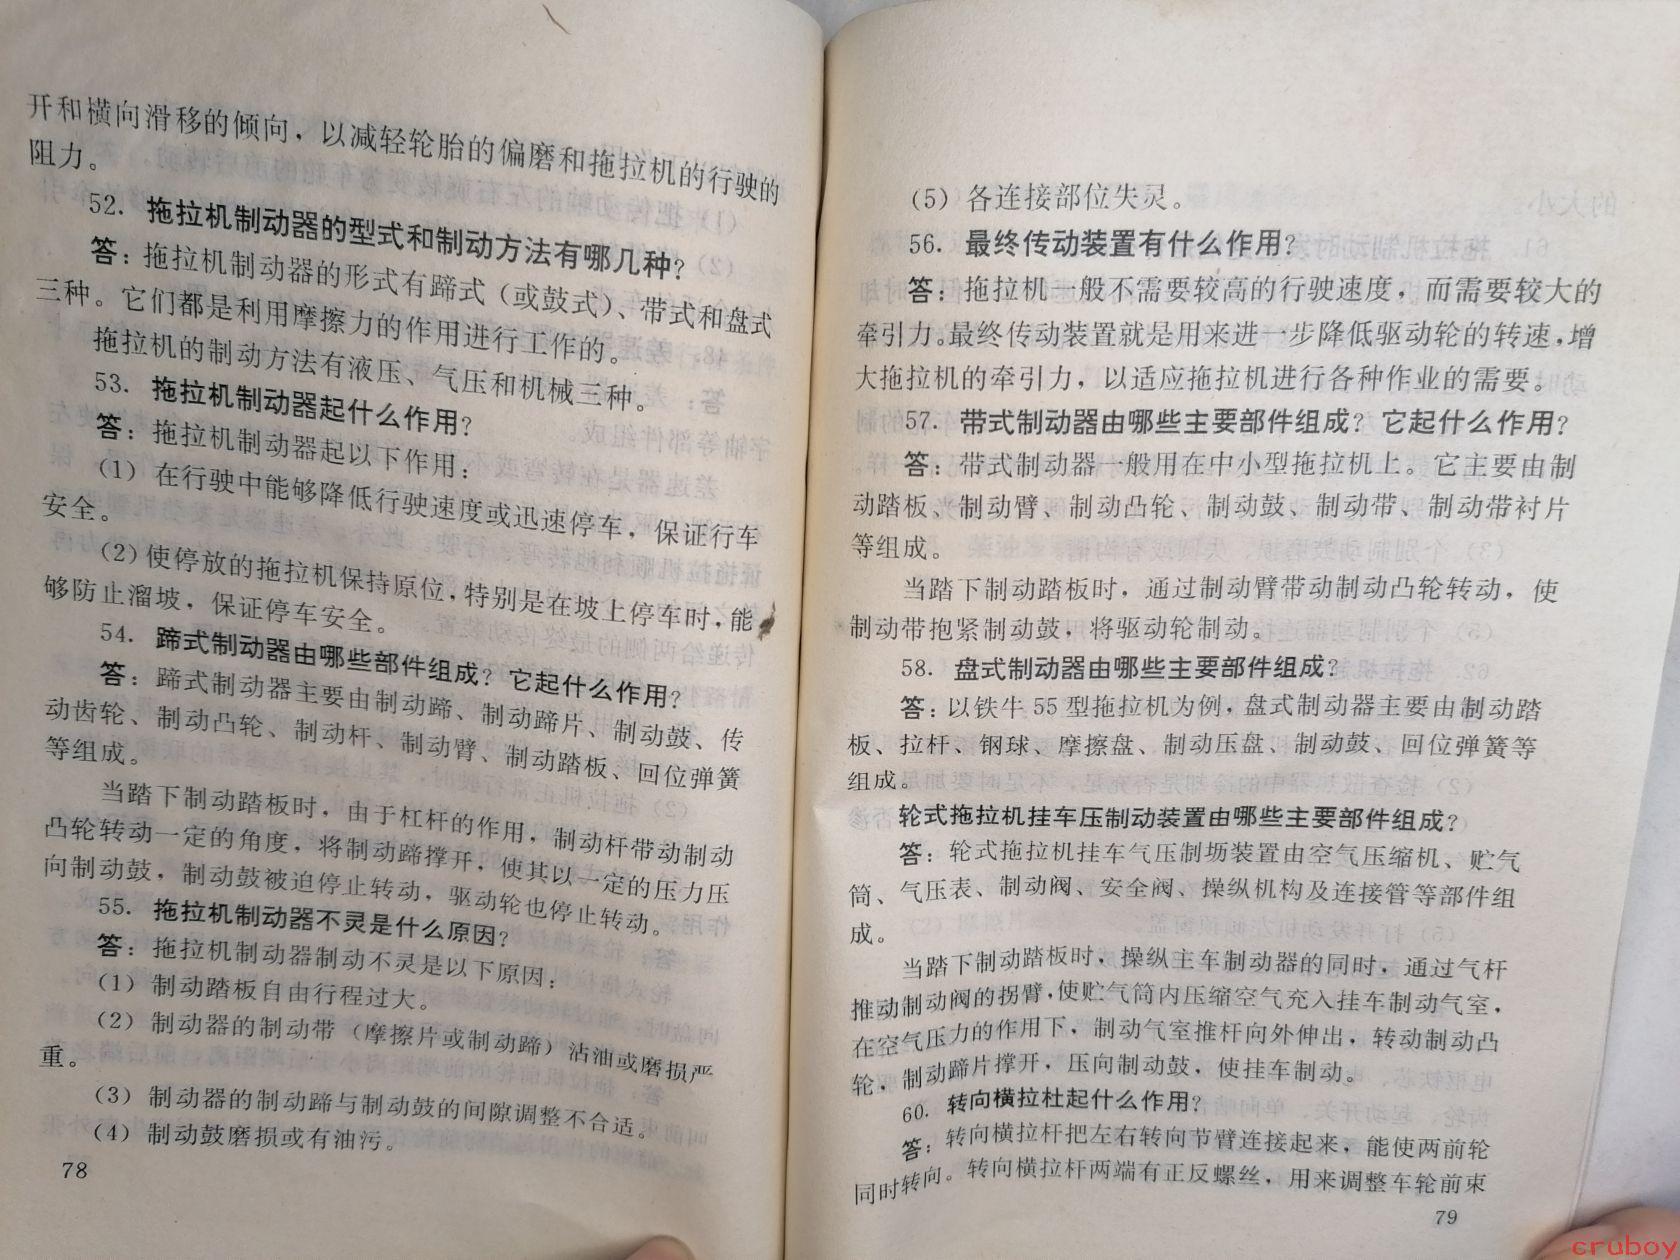 开和横向滑移的倾向，以减轻轮胎的偏磨和拖拉机的行驶的
阻力。
52. 拖拉机制动器的型式和制动方法有哪几种？
答：拖拉机制动器的形式有蹄式（或鼓式）、带式和盘式
三种。它们都是利用摩擦力的作用进行工作的。
拖拉机的制动方法有液压、气压和机械三种。
53. 拖拉机制动器起什么作用？
答：拖拉机制动器起以下作用：
(1) 在行驶中能够降低行驶速度或迅速停车，保证行车
安全。
(2) 使停放的拖拉机保持原位，特别是在坡上停车时，能
够防止溜坡，保证停车安全。
54. 蹄式制动器由哪些部件组成？它起什么作用？
答：蹄式制动器主要由制动蹄、制动蹄片、制动鼓、传
动齿轮、制动凸轮、制动杆、制动臂、制动踏板、回位弹簧
等组成。
当踏下制动踏板时，由于杠杆的作用，制动杆带动制动
凸轮转动一定的角度，将制动蹄撑开，使其以一定的压力压
向制动鼓，制动鼓被迫停止转动，驱动轮也停止转动。
55. 拖拉机制动器不灵是什么原因？
答：拖拉机制动器制动不灵是以下原因：
(1) 制动踏板自由行程过大。
(2) 制动器的制动带（摩擦片或制动蹄）沾油或磨损严
重。
(3) 制动器的制动蹄与制动鼓的间隙调整不合适。
(4) 制动鼓磨损或有油污。
78
(5) 各连接部位失灵。
56. 最终传动装置有什么作用？
答：拖拉机一般不需要较高的行驶速度，而需要较大的
牵引力。最终传动装置就是用来进一步降低驱动轮的转速，增
大拖拉机的牵引力，以适应拖拉机进行各种作业的需要。
57. 带式制动器由哪些主要部件组成？它起什么作用？
答：带式制动器一般用在中小型拖拉机上。它主要由制
动踏板、制动臂、制动凸轮、制动鼓、制动带、制动带衬片
等组成。
当踏下制动踏板时，通过制动臂带动制动凸轮转动，使
制动带抱紧制动鼓，将驱动轮制动。
58. 盘式制动器由哪些主要部件组成？
答：以铁牛 55 型拖拉机为例，盘式制动器主要由制动踏
板、拉杆、钢球、摩擦盘、制动压盘、制动鼓、回位弹簧等
组成。
轮式拖拉机挂车压制动装置由哪些主要部件组成？
答：轮式拖拉机挂车气压制坜装置由空气压缩机、贮气
筒、气压表、制动阀、安全阀、操纵机构及连接管等部件组
成。
当踏下制动踏板时，操纵主车制动器的同时，通过气杆
推动制动阀的拐臂，使贮气筒内压缩空气充入挂车制动气室，
在空气压力的作用下，制动气室推杆向外伸出，转动制动凸
轮，制动蹄片撑开，压向制动鼓，使挂车制动。
60. 转向横拉杜起什么作用？
答：转向横拉杆把左右转向节臂连接起来，能使两前轮
同时转向。转向横拉杆两端有正反螺丝，用来调整车轮前束
79
cruboy